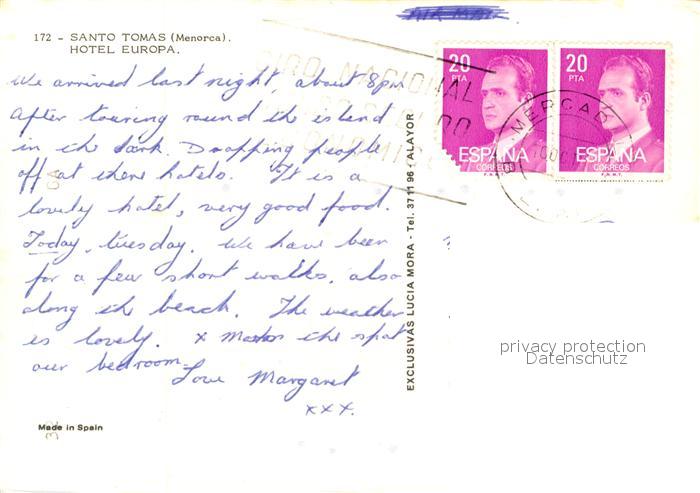 AIR MAIL
172 - SANTO TOMAS (Menorca).
HOTEL EUROPA.
We arrived last night, about 8pm
After touring round the island
in the dark. Dropping people
off at there hotels. It is a
lovely hotel, very good food.
Today, tuesday. We have been
for a few short walks, also
along the beach. The weather
is lovely. x Marks the spot
our bedroom
Love Margaret
xxx.
Made in Spain
EXCLUSIVAS LUCIA MORA - Tel. 37 11 96 - ALAYOR
GIRO NACIONAL
20
PTA
ESPAÑA
CORREOS
F.N.M.T.
20
PTA
ESPAÑA
CORREOS
F.N.M.T.
MERCAD
privacy protection
Datenschutz